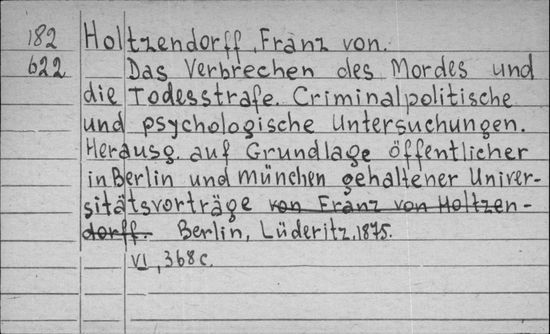 182 Holtzendorff, Franz von.
622 Das Verbrechen des Mordes und
die Todesstrafe. Criminalpolitische
und psychologische Untersuchungen.
Herausg. auf Grundlage öffentlicher
in Berlin und München gehaltener Univer-
sitätsvorträge von Franz von Holtzen-
dorff. Berlin, Lüderitz, 1875.
VI, 368 c.